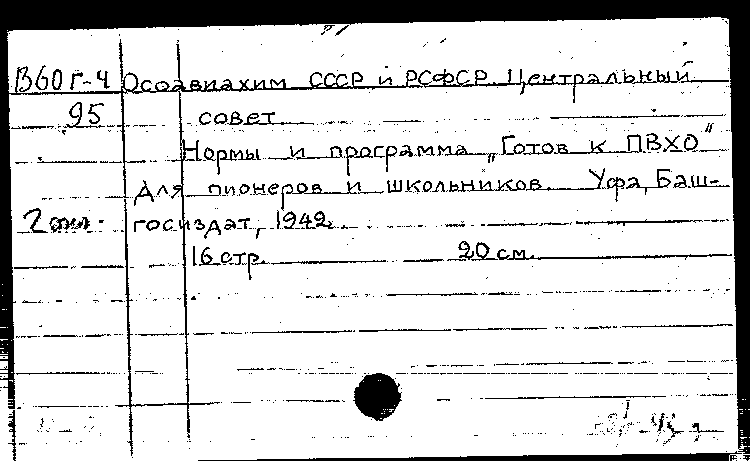 В60г-4 Осоавиахим СССР и РСФСР. Центральный
95 совет.
Нормы и программа „Готов к ПВХО"
для пионеров и школьников. Уфа, Баш-
2 экз. госиздат, 1942.
16 стр. 20 см.